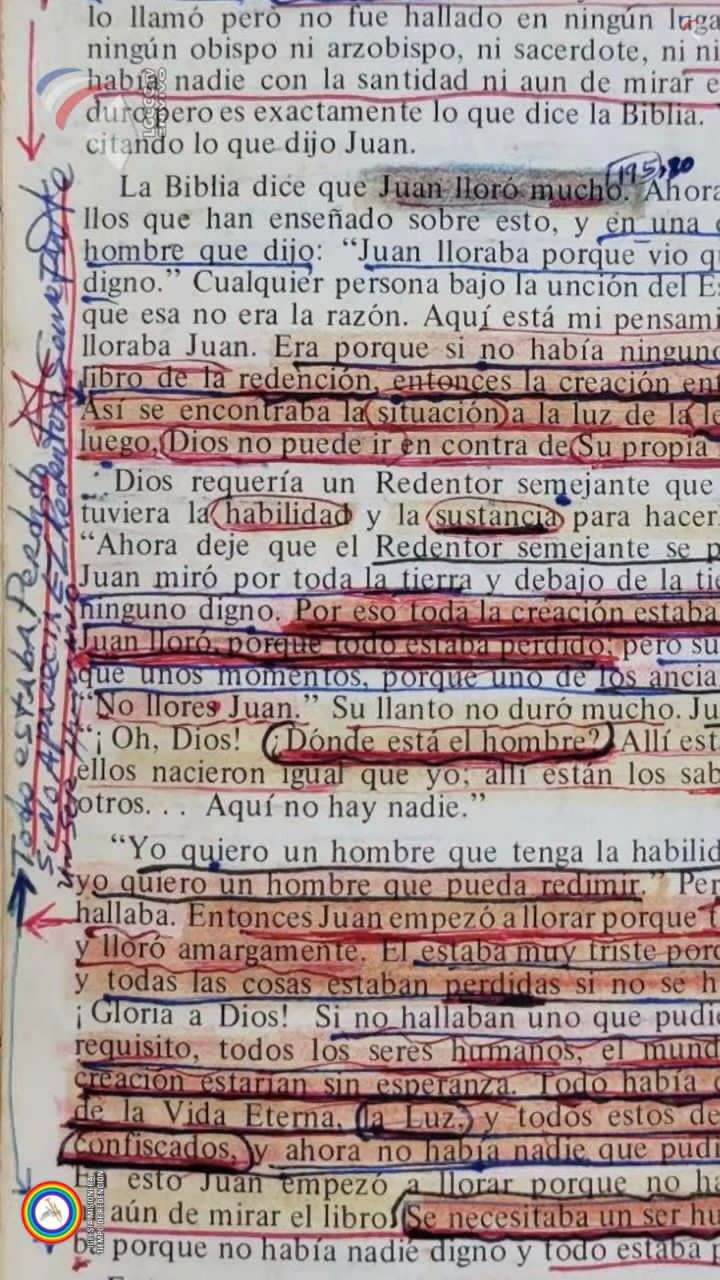 lo llamó pero no fue hallado en ningún luga
ningún obispo ni arzobispo, ni sacerdote, ni ni
había nadie con la santidad ni aun de mirar e
duro pero es exactamente lo que dice la Biblia.
citando lo que dijo Juan.
195,80
La Biblia dice que Juan lloró mucho. Ahora
llos que han enseñado sobre esto, y en una
hombre que dijo: “Juan lloraba porque vio q
digno.” Cualquier persona bajo la unción del E
que esa no era la razón. Aquí está mi pensami
lloraba Juan. Era porque si no había ninguno
libro de la redención, entonces la creación en
Así se encontraba la situación a la luz de la
luego, Dios no puede ir en contra de Su propia
Dios requería un Redentor semejante que
tuviera la habilidad y la sustancia para hacer
“Ahora deje que el Redentor semejante se p
Juan miró por toda la tierra y debajo de la ti
ninguno digno. Por eso toda la creación estaba
Juan lloró, porque todo estaba perdido; pero su
que unos momentos, porque uno de los ancia
“No llores Juan.” Su llanto no duró mucho. Ju
“¡Oh, Dios! ¿Dónde está el hombre? Allí est
ellos nacieron igual que yo; allí están los sab
otros. . . Aquí no hay nadie.”
“Yo quiero un hombre que tenga la habilid
yo quiero un hombre que pueda redimir.” Per
hallaba. Entonces Juan empezó a llorar porque
y lloró amargamente. El estaba muy triste porq
y todas las cosas estaban perdidas si no se h
¡Gloria a Dios! Si no hallaban uno que pudie
requisito, todos los seres humanos, el mund
creación estarían sin esperanza. Todo había
de la Vida Eterna, la Luz, y todos estos de
confiscados, y ahora no había nadie que pudi
esto Juan empezó a llorar porque no ha
aún de mirar el libro. Se necesitaba un ser hu
porque no había nadie digno y todo estaba p
Todo estaba Perdido
Si NO APARECIA EL Redentor Semejante
un ser Humano